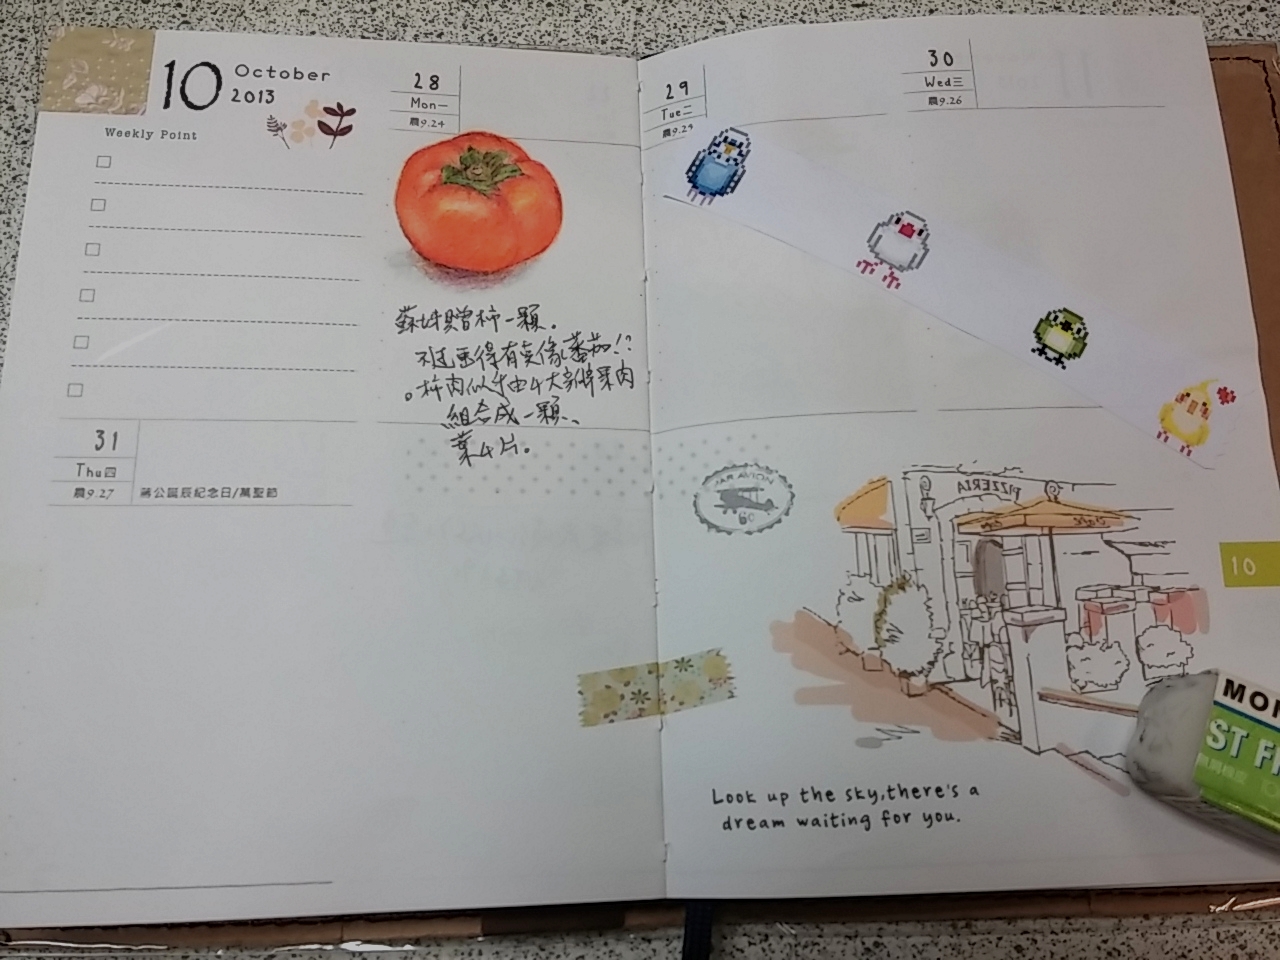 10
October
2013
Weekly Point
28
Mon一
農9.24
29
Tue二
農9.25
30
Wed三
農9.26
贈柿一顆。
不過更得有莫像蕃茄!?
。柿肉似乎由4大果肉
組合成一顆、
葉4片。
31
Thu四
農9.27
蔣公誕辰紀念日/萬聖節
PAR AVION
60
PIZZERIA
Cafe
10
Look up the sky,there's a
dream waiting for you.
MO
ST F